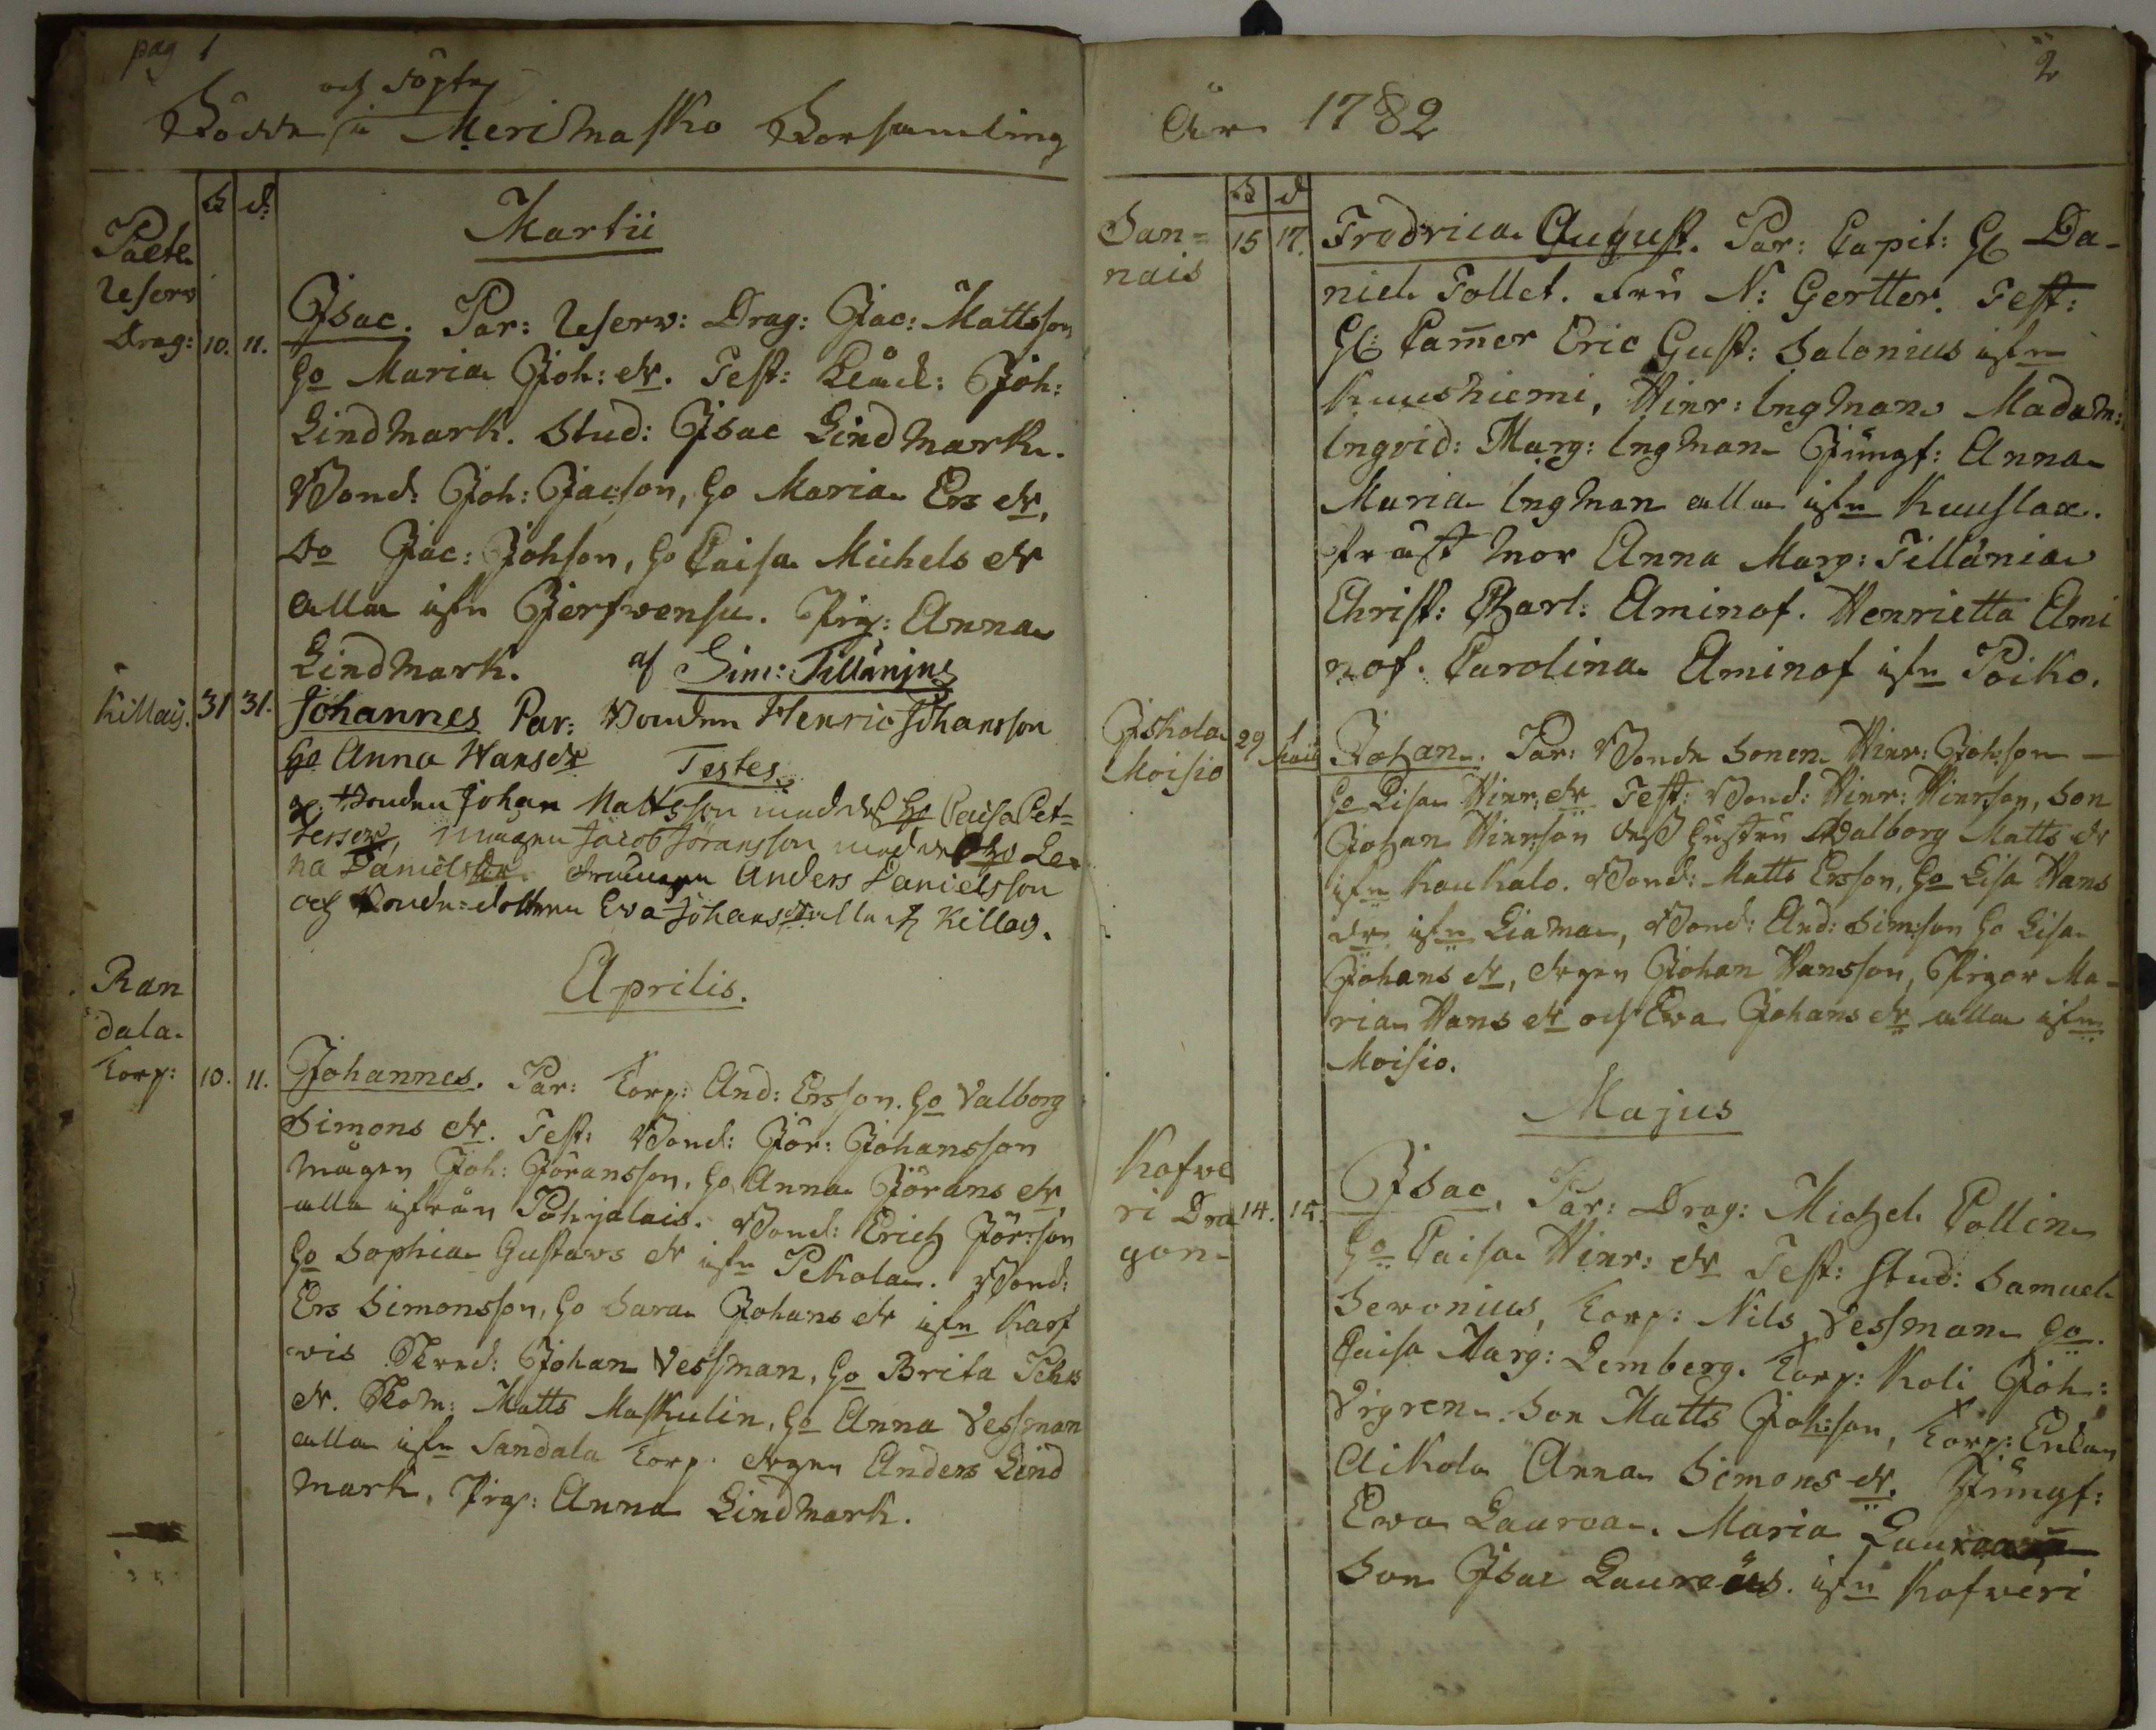 pag 1
och döpte
Födde i Merimasko Församling
F d:
Martii
Paeta
Reserv
Drag: 10. 11. Isac. Par: Reserv: Drag: Jac: Mattsson
Ho Maria Joh: dr. Test: Jöh:
Lindmark. Stud: Isac Lindmark.
Bond: Joh: Jacson, Ho Maria Ers dr,
do Jac: Johson, Ho Caisa Michels dr
alla ifrn Gierfvensu. Pig: Anna
Lindmark. af Sim: Tillänius
Killais. 31 31. Johannes Par: Bonden Henric Johansson
Ho Anna Hansdr Testes
Bonden Johan Mattsson med dess Ho Caisa Pet-
tersdr, mågen Jacob Jöransson med des Ho Le-
na Danielsdr. Drengen Anders Danielsson
och Bonde-dottren Eva Johansdr alla fr Killais.
Aprilis.
Ran
dala
Torp: 10. 11. Johannes. Par: Torp: And: Ersson. Ho Valborg
Simons dr. Test: Bond: Jör: Johansson
mågen Joh: Jöransson, Ho Anna Jörans dr,
alla ifrån Pohjalais. Bond: Erich Jörson
Ho Sophia Gustavs dr ifrn Pekola. Bond:
Ers Simonsson, Ho Sara Johans dr ifrn Karf
vis Johan Vessman, Ho Brita Pehrs
dr. Matts Maskulin, Ho Anna Vessman
alla ifrn Sandala Torp. drgen Anders Lind
mark, Pig: Anna Lindmark.
2
År 1782
F d
San-
nais 15 17. Fredrica August. Par: Capit: H Da-
niel Tollet. Fru N: Gertter. Test:
H: Camer Eric Gust: Salonius ifrn
Kuushiemi, Hinr: Ingman Madam:
Ingrid: Marg: Ingman Jungf: Anna
Maria Ingman alla ifrn Kuuslax.
Prost mor Anna Marg: Tillänia
Christ: Charl: Aminof. Henrietta Ami
nof. Carolina Aminof ifrn Poiko.
Iskola
Moisio 29 Maii Johan. Par: Bonde Sonen Hinr: Johson
Ho Lisa Hinr: dr Test: Bond: Hinr: Hinrson, Son
Johan Hinrson dess hustru Walborg Matts dr
ifrn Kaukalo. Bond: Matts Ersson, Ho Lisa Hans
dr ifrn Liama, Bond: And: Simson Ho Lisa
Johans dr, drgen Johan Hansson, Pigor Ma-
ria Hans dr och Eva Johans dr alla ifrn
Moisio.
Majus
Kofve
ri Dra
gon 14. 15. Isac. Par: Drag: Michel Collin
Ho Caisa Hinr: dr Test: Stud: Samuel
Sevonius, Torp: Nils Vessman Ho
Caisa Marg: Lemberg. Torp: Koli Joh:
Vigren. Son Matts Johson, Torp: Enka
Aikola Anna Simons dr. Jungf:
Ewa Lauræa. Maria
Son Isac Lauræus. ifrn Kofveri